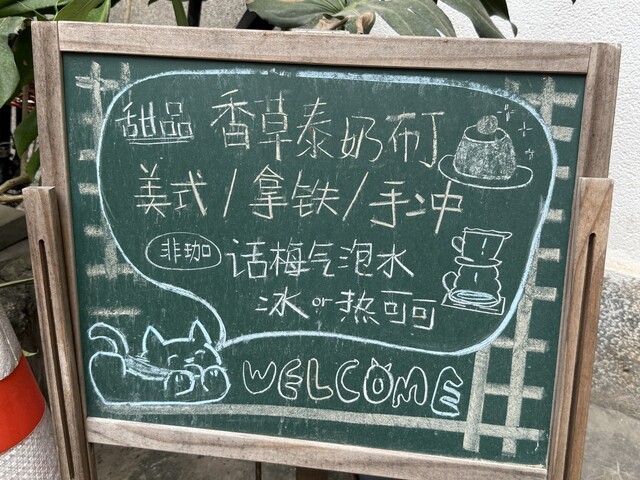 甜品 香草泰奶布丁
美式/拿铁/手冲
非珈 话梅气泡水
冰or热可可
WELCOME